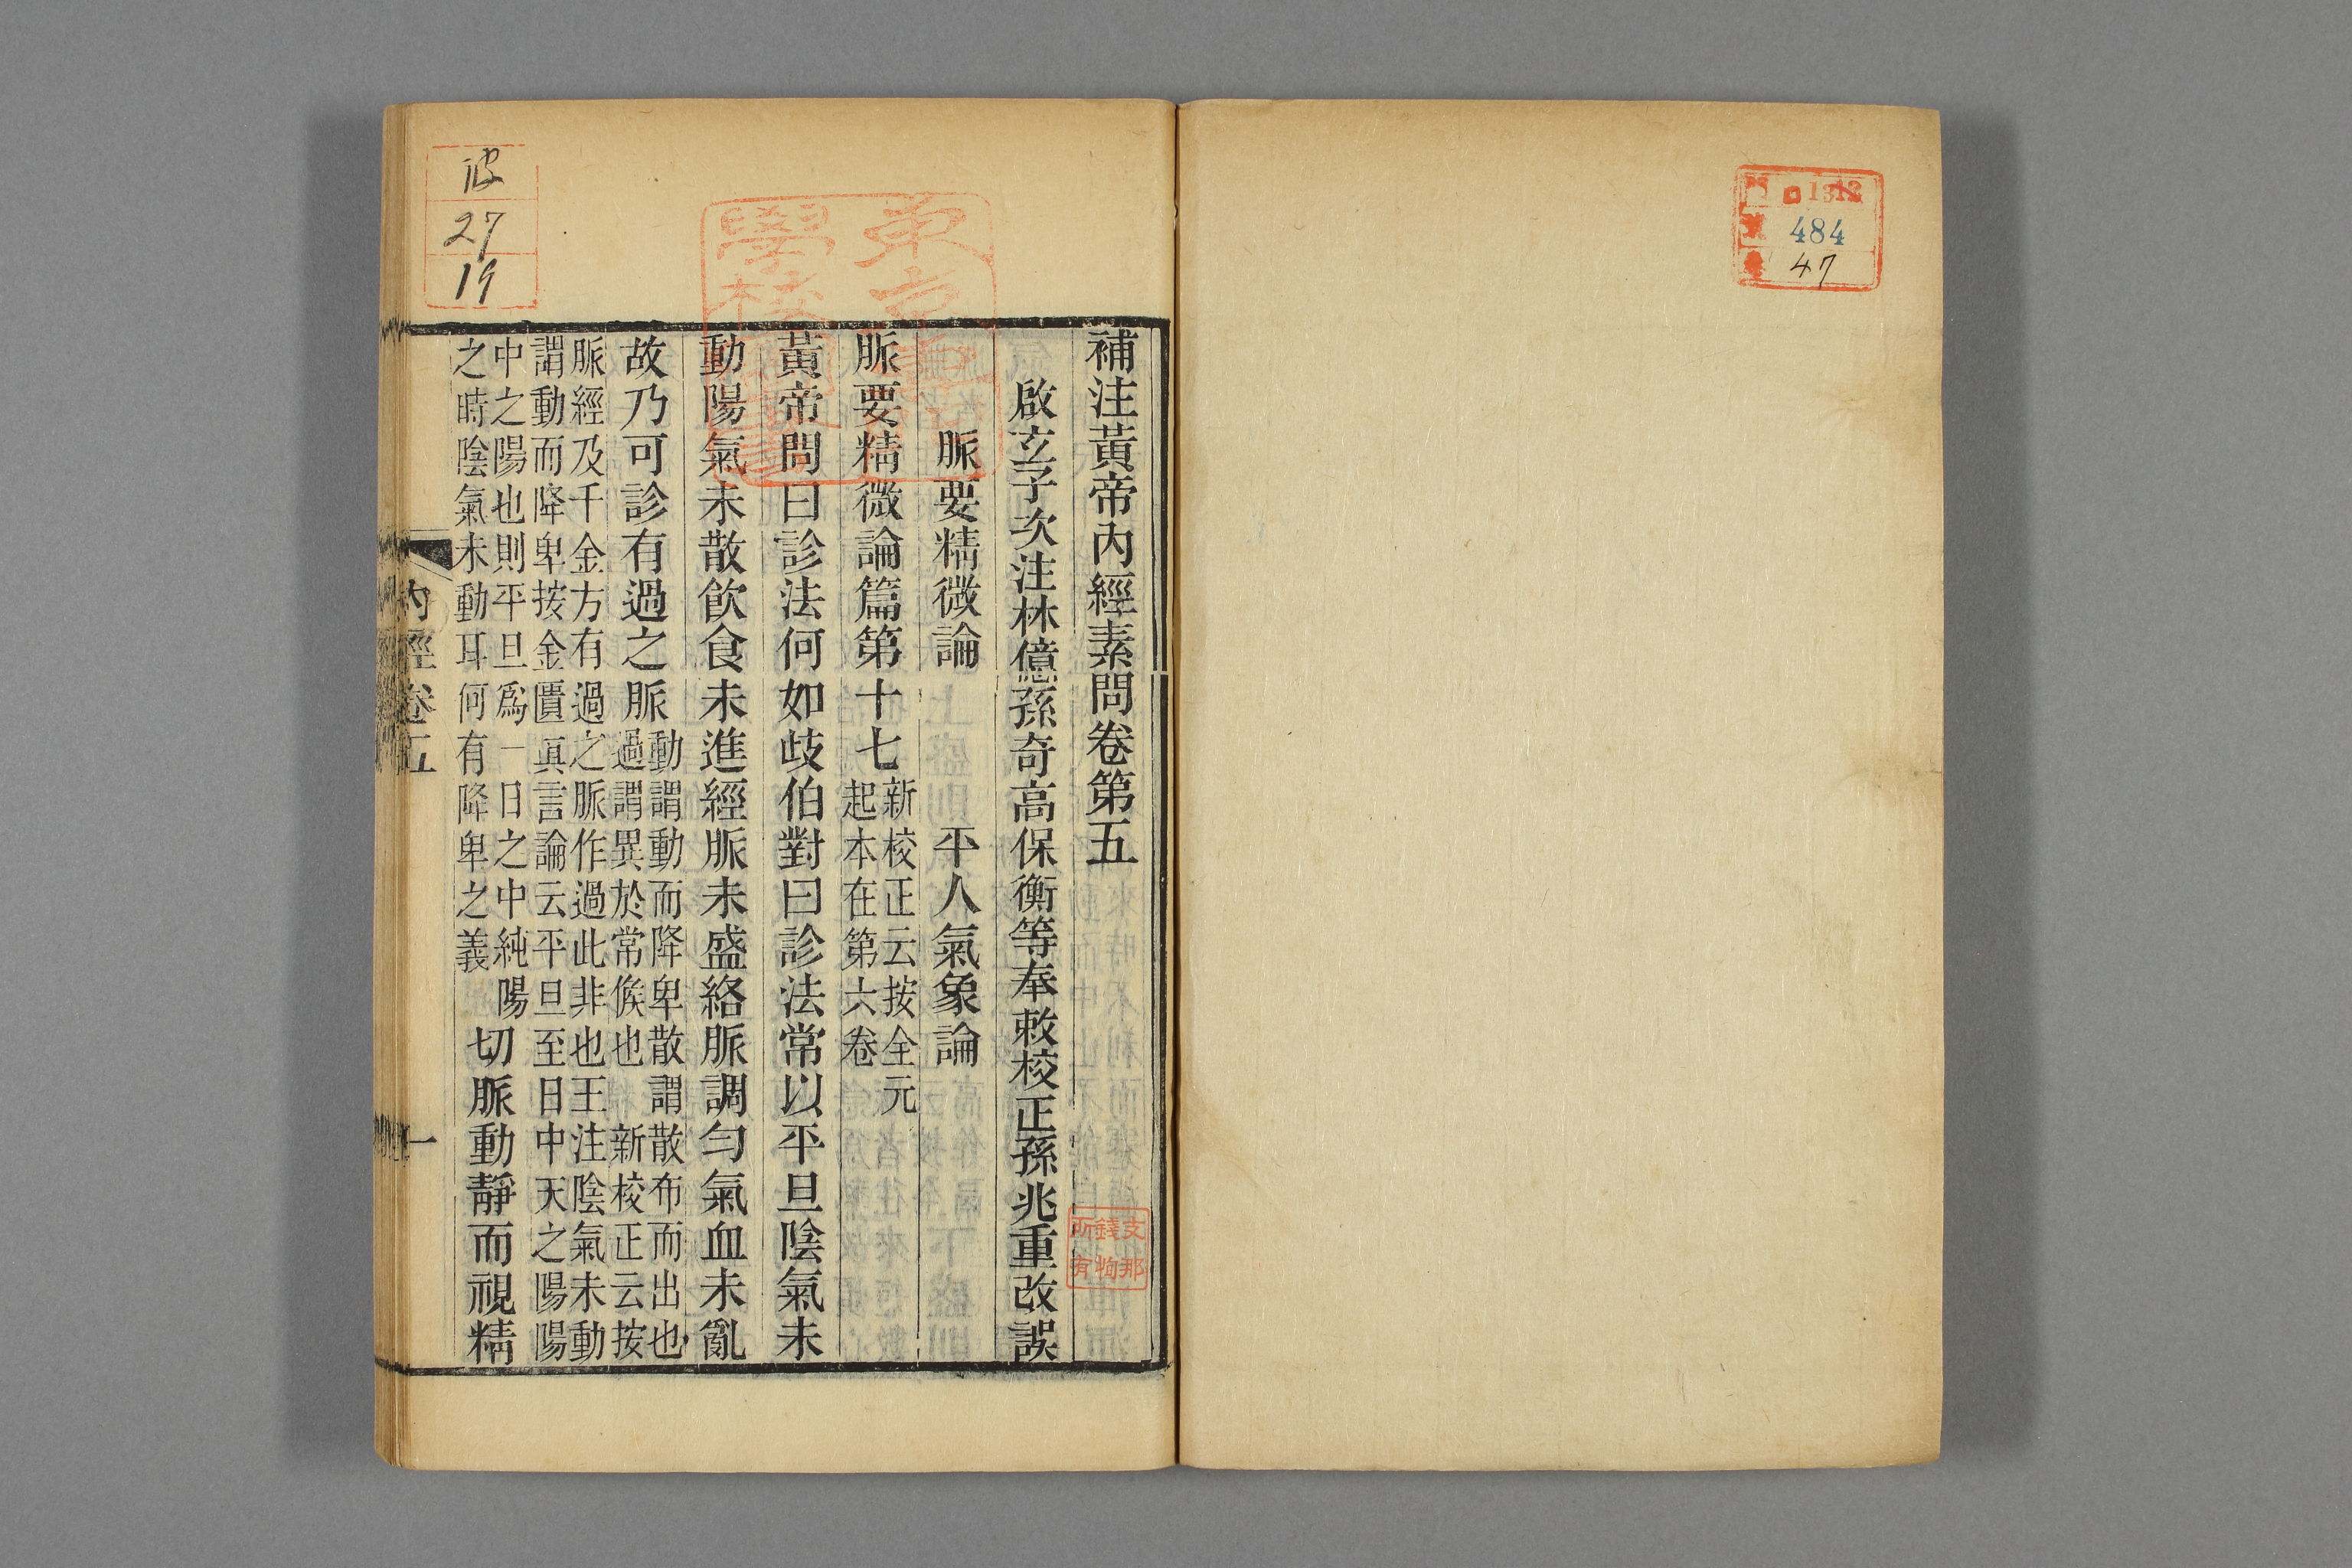 1312
484
47
補注黃帝內經素問卷第五
啟玄子次注林億孫奇高保衡等奉敕校正孫兆重改誤
脈要精微論 平人氣象論
脈要精微論篇第十七
新校正云按全元
起本在第六卷
黃帝問曰診法何如歧伯對曰診法常以平旦陰氣未
動陽氣未散飲食未進經脈未盛絡脈調勻氣血未亂
故乃可診有過之脈
動謂動而降卑散謂散布而出也
過謂異於常候也 新校正云按
脈經及千金方有過之脈作過此非也王注陰氣未動
謂動而降卑按金匱真言論云平旦至日中天之陽陽
中之陽也則平旦為一日之中純陽
之時陰氣未動耳何有降卑之義
切脈動靜而視精
內經卷五
一
支那
錢恂
所有
27
19